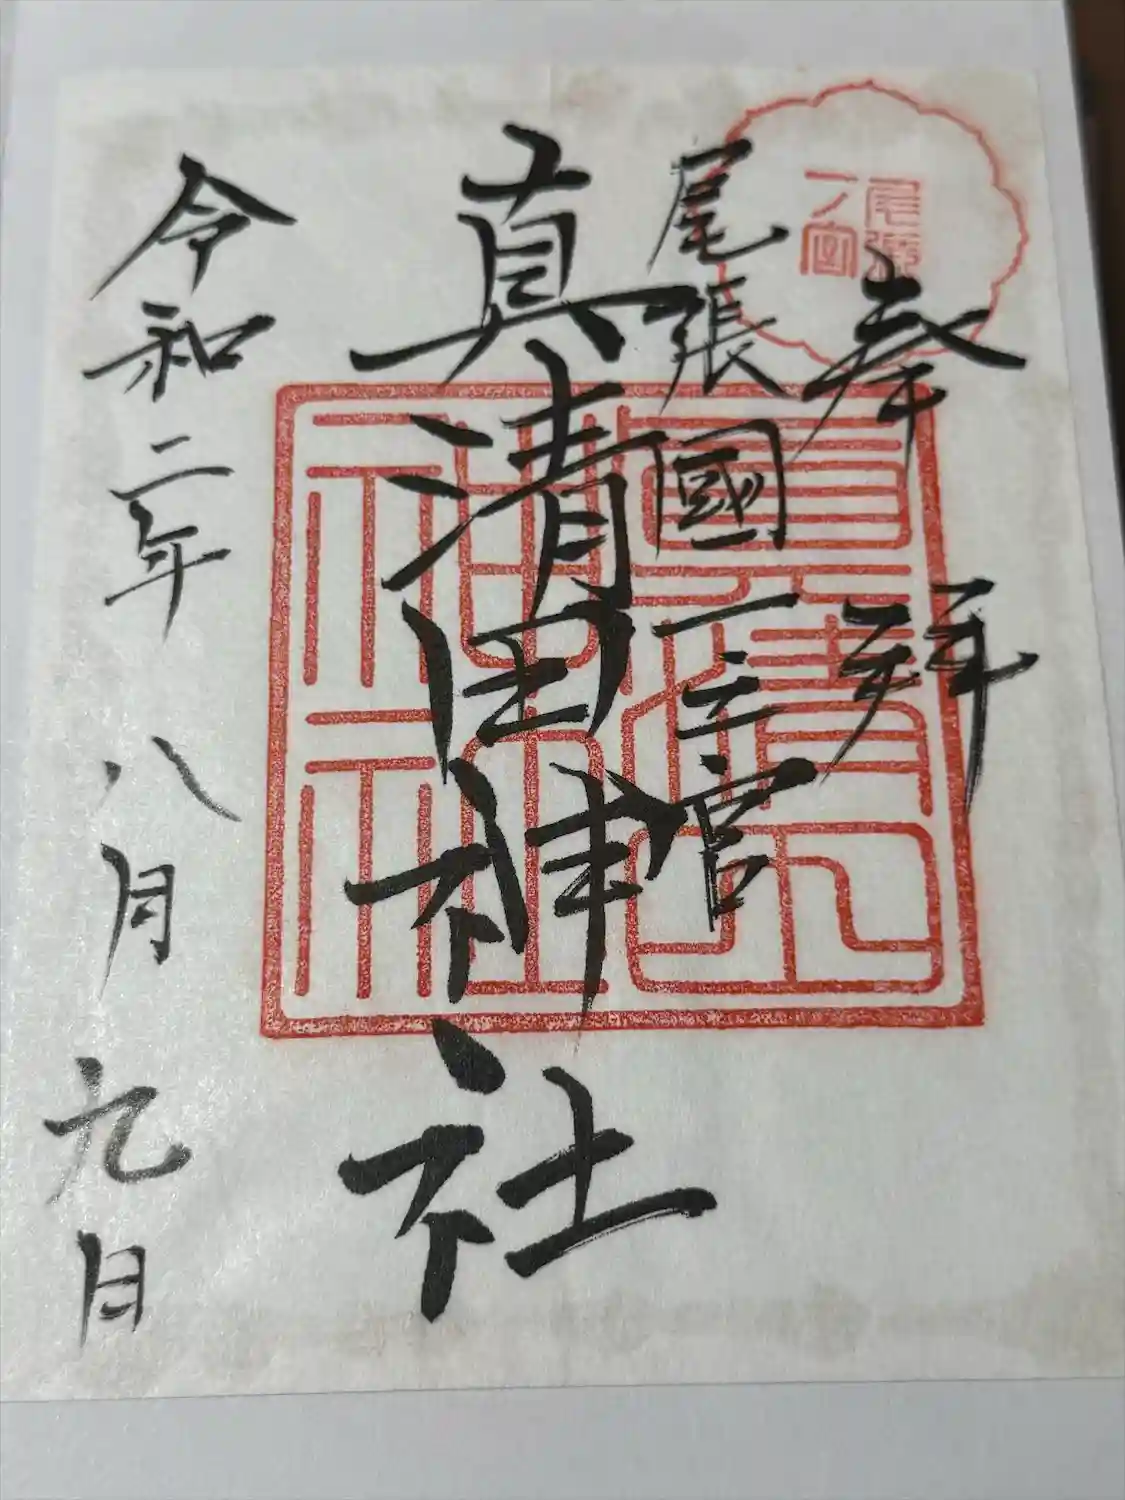 奉拝
尾張
一ノ宮
尾張國一之宮
真清田神社
真清田神社
令和二年八月九日